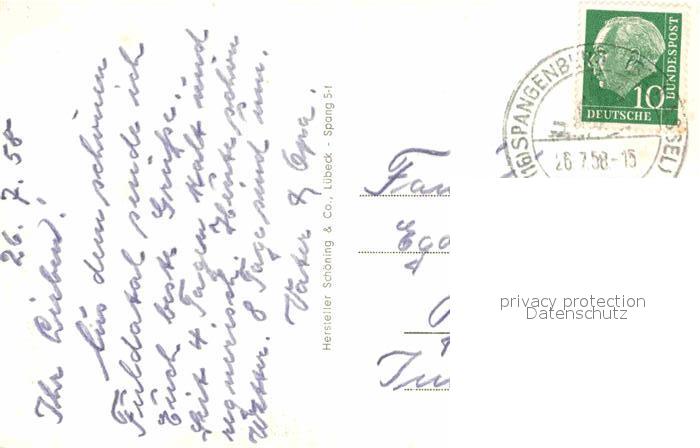 26. 7. 58
Ihr Lieben!
Aus dem schönen
Fuldatal sende ich
Euch beste Grüße.
Seit 4 Tagen kalt und
regnerisch. Heute schön
Wetter. 8 Tage sind um.
Vater & Opa.
Hersteller Schöning & Co., Lübeck - Spang 5-1
DEUTSCHE
BUNDESPOST
10
(16) SPANGENBERG
26.7.58-15
Fam
privacy protection
Datenschutz